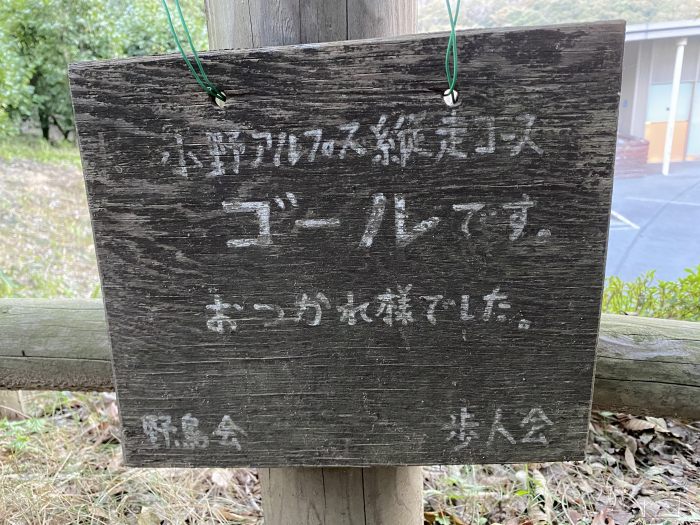 小野アルプス縦走コース
ゴールです。
おつかれ様でした。
野鳥会 歩人会